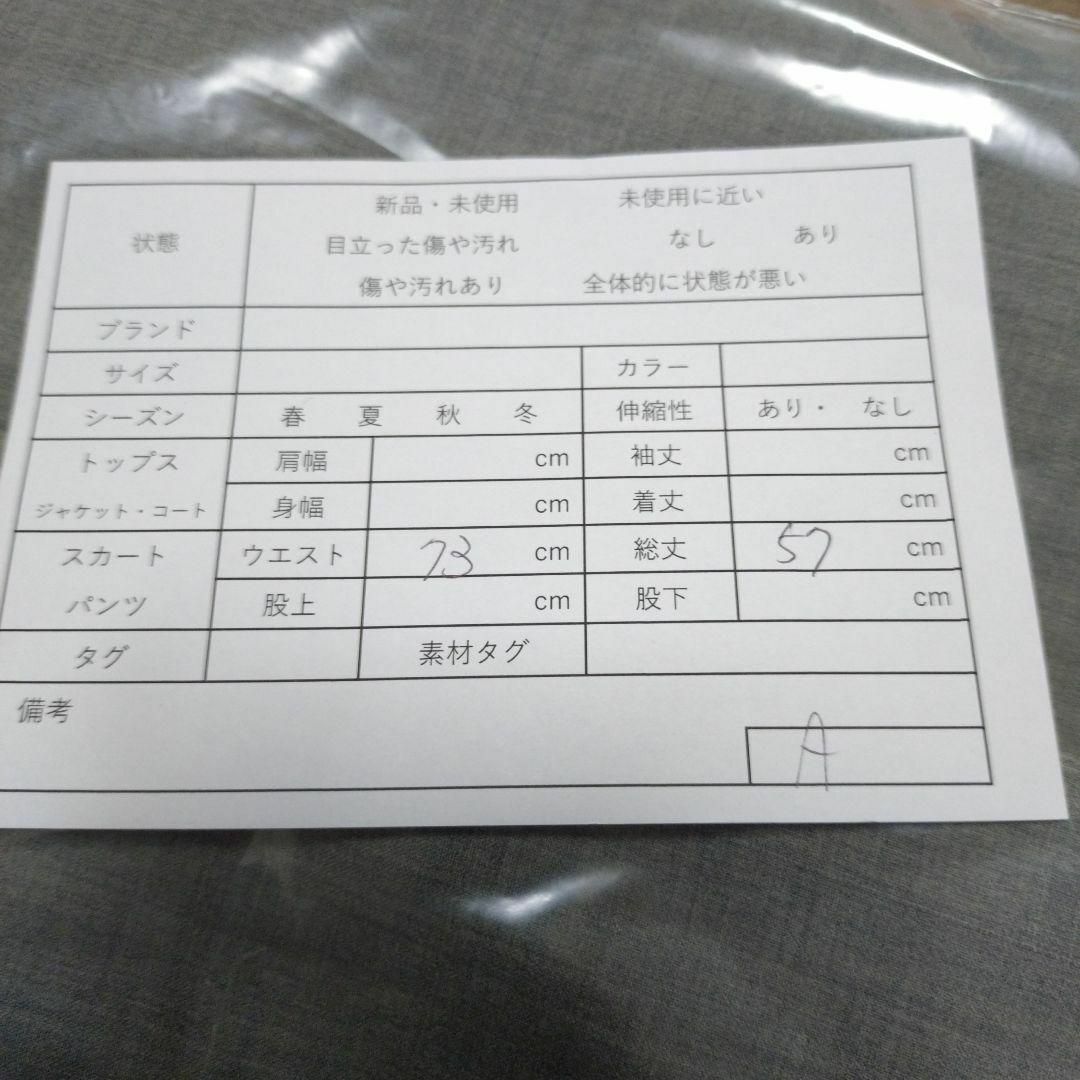 状態 新品・未使用 未使用に近い
目立った傷や汚れ なし あり
傷や汚れあり 全体的に状態が悪い
ブランド
サイズ カラー
シーズン 春 夏 秋 冬 伸縮性 あり・ なし
トップス 肩幅 cm 袖丈 cm
ジャケット・コート 身幅 cm 着丈 cm
スカート ウエスト 73 cm 総丈 57 cm
パンツ 股上 cm 股下 cm
タグ 素材タグ
備考
A